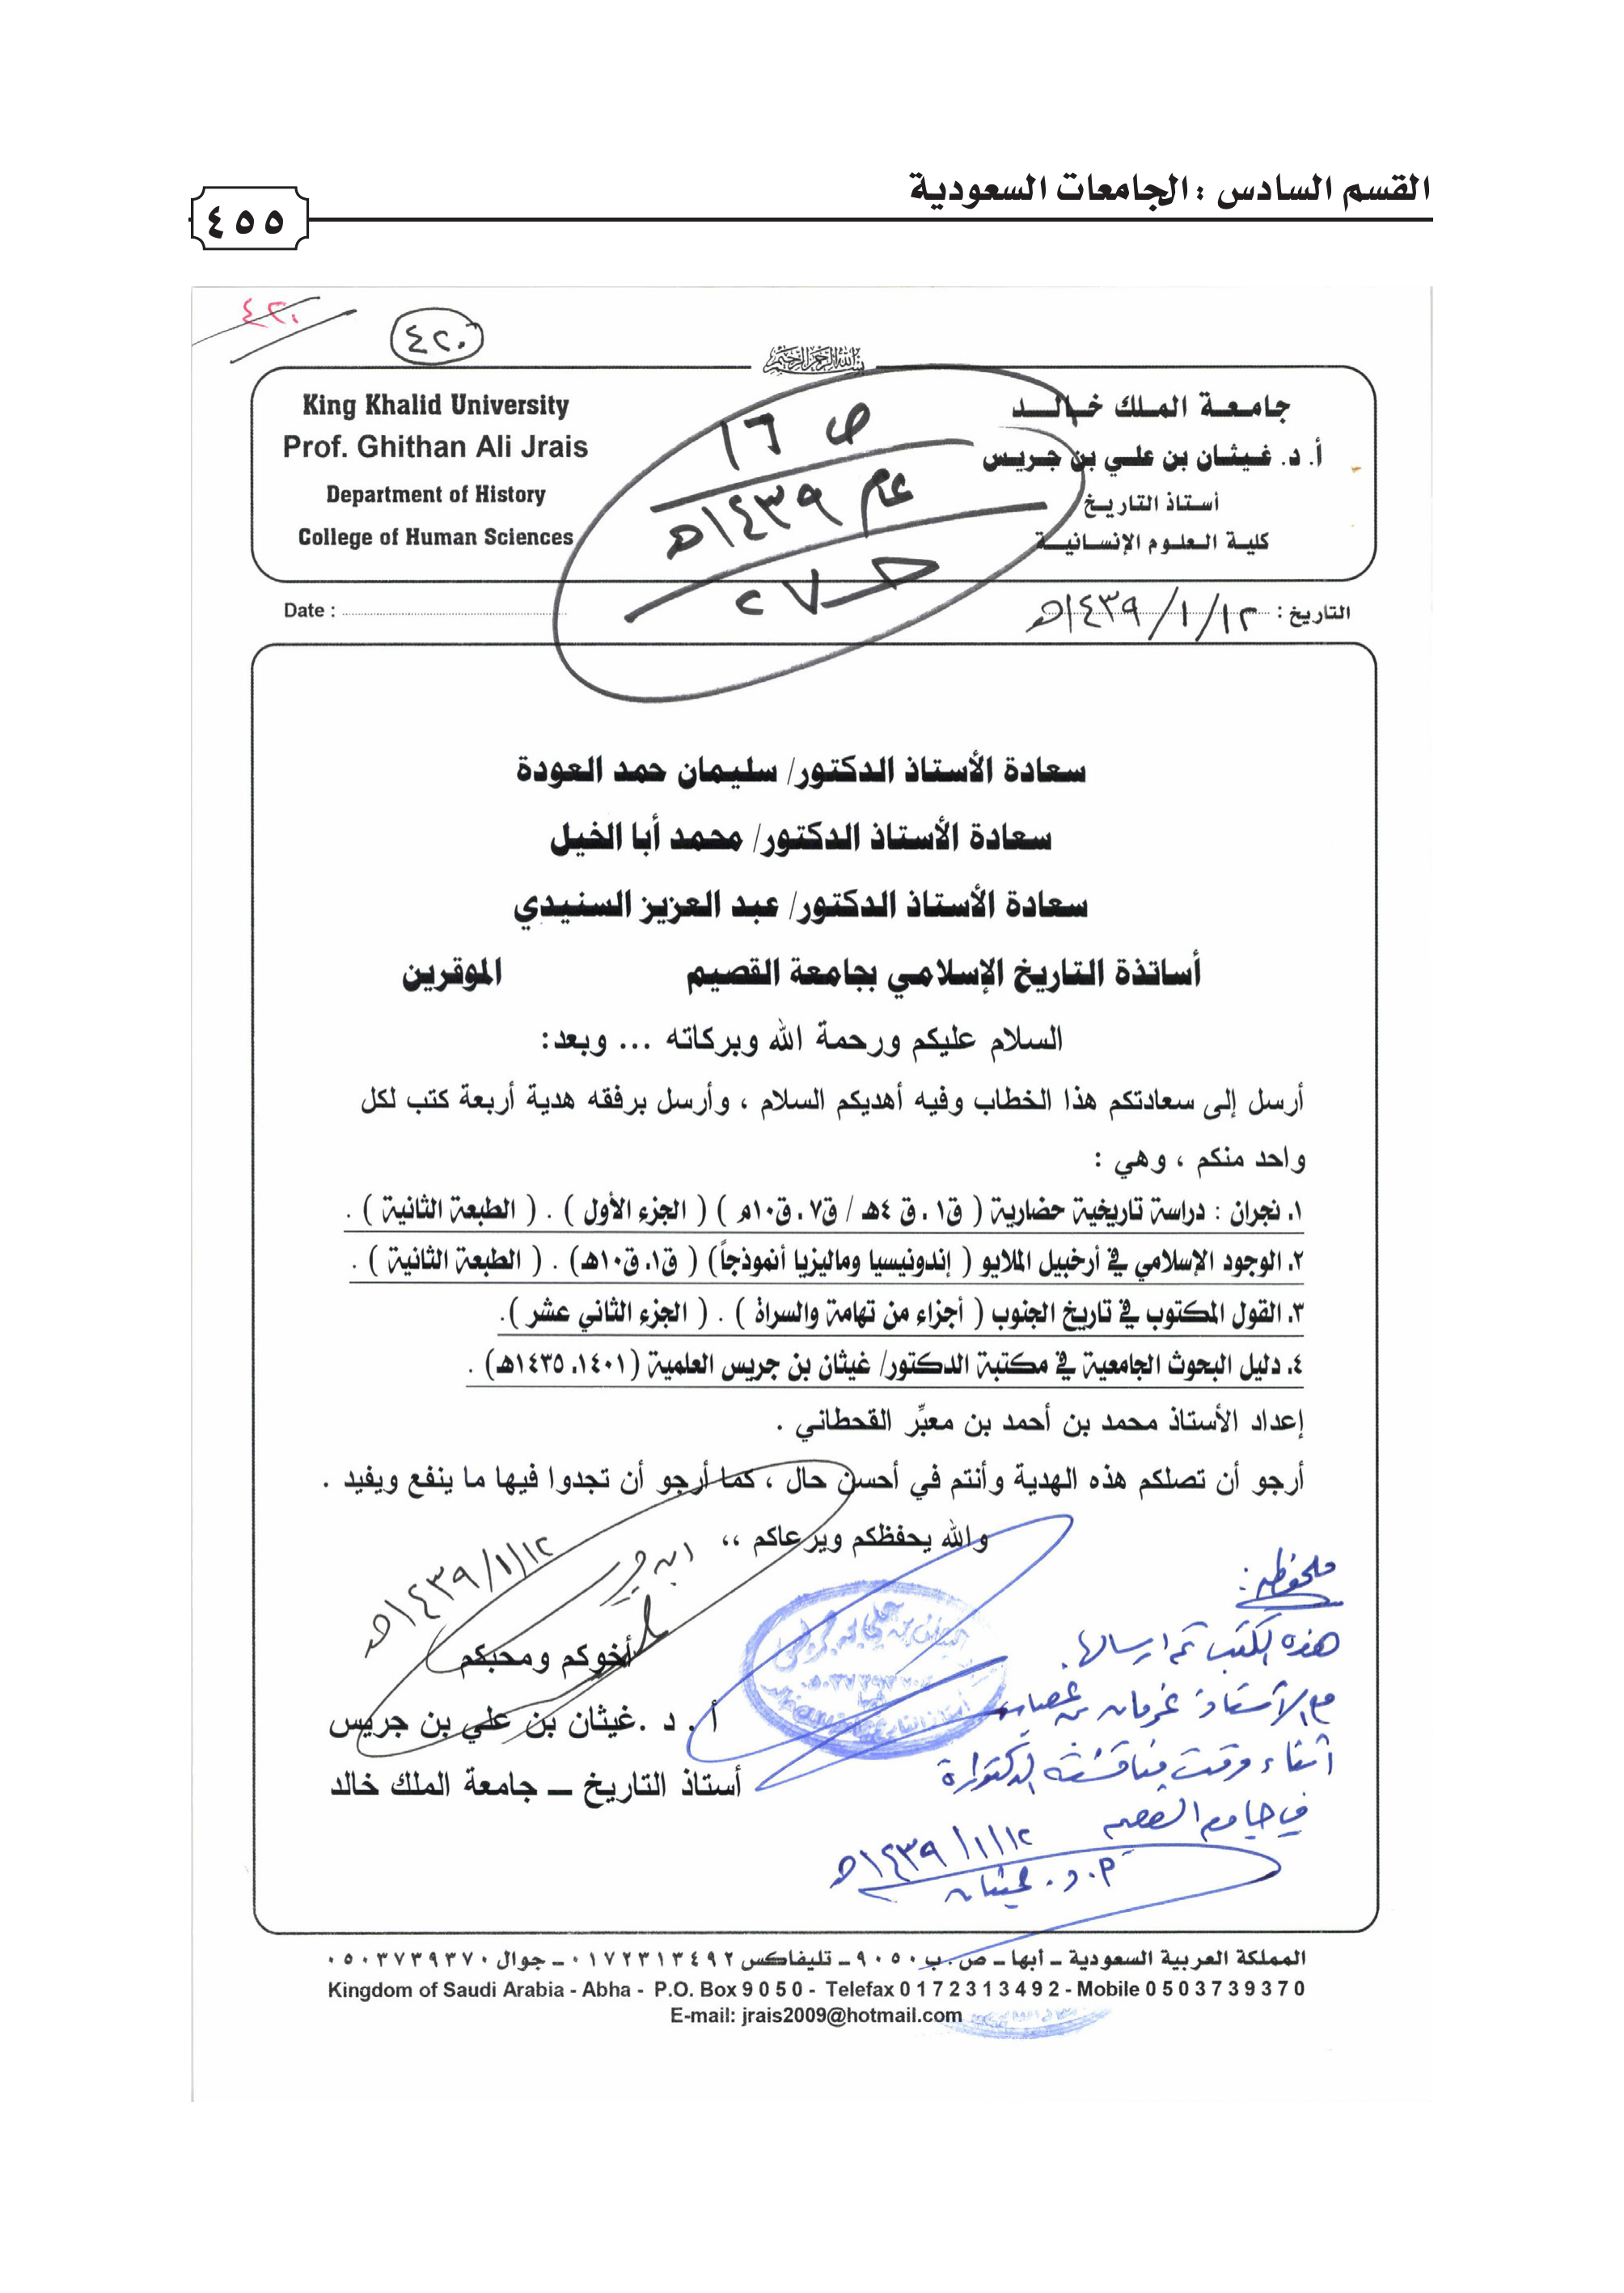 القسم السادس : الجامعات السعودية
٤٥٥
٤٢٠
٤٢٠
بسم الله الرحمن الرحيم
King Khalid University
Prof. Ghithan Ali Jrais
Department of History
College of Human Sciences
جامعة الملك خالد
أ. د. غيثان بن علي بن جريس
أستاذ التاريخ
كلية العلوم الإنسانية
ص ١٦
عام ١٤٣٩هـ
حـ ٢٧
Date :
التاريخ : ١٤٣٩/١/١٢هـ
سعادة الأستاذ الدكتور/ سليمان حمد العودة
سعادة الأستاذ الدكتور/ محمد أبا الخيل
سعادة الأستاذ الدكتور/ عبد العزيز السنيدي
أساتذة التاريخ الإسلامي بجامعة القصيم الموقرين
السلام عليكم ورحمة الله وبركاته ... وبعد:
أرسل إلى سعادتكم هذا الخطاب وفيه أهديكم السلام ، وأرسل برفقه هدية أربعة كتب لكل
واحد منكم ، وهي :
١. نجران : دراسة تاريخية حضارية ( ق١ . ق ٤هـ / ق٧ . ق١٠م ) ( الجزء الأول ) . ( الطبعة الثانية ) .
٢. الوجود الإسلامي في أرخبيل الملايو ( إندونيسيا وماليزيا أنموذجاً) ( ق١. ق١٠هـ) . ( الطبعة الثانية ) .
٣. القول المكتوب في تاريخ الجنوب ( أجزاء من تهامة والسراة ) . ( الجزء الثاني عشر ).
٤. دليل البحوث الجامعية في مكتبة الدكتور/ غيثان بن جريس العلمية (١٤٠١. ١٤٣٥هـ) .
إعداد الأستاذ محمد بن أحمد بن معبِّر القحطاني .
أرجو أن تصلكم هذه الهدية وأنتم في أحسن حال ، كما أرجو أن تجدوا فيها ما ينفع ويفيد .
والله يحفظكم ويرعاكم ،،
١٤٣٩/١/١٢هـ
أخوكم ومحبكم
أ . د . غيثان بن علي بن جريس
أستاذ التاريخ ــ جامعة الملك خالد
ملحوظة :
هذه الكتب تم ارسالها
مع الأستاذ غرمان بن غصاب
أثناء وقت مناقشته الدكتوراة
في جامعة القصيم
١٤٣٩/١/١٢هـ
أ. د. غيثان
المملكة العربية السعودية ـ أبها ـ ص . ب ٩٠٥٠ ـ تليفاكس ٠١٧٢٣١٣٤٩٢ ـ جوال ٠٥٠٣٧٣٩٣٧٠
Kingdom of Saudi Arabia - Abha - P.O. Box 9 0 5 0 - Telefax 0 1 7 2 3 1 3 4 9 2 - Mobile 0 5 0 3 7 3 9 3 7 0
E-mail: jrais2009@hotmail.com